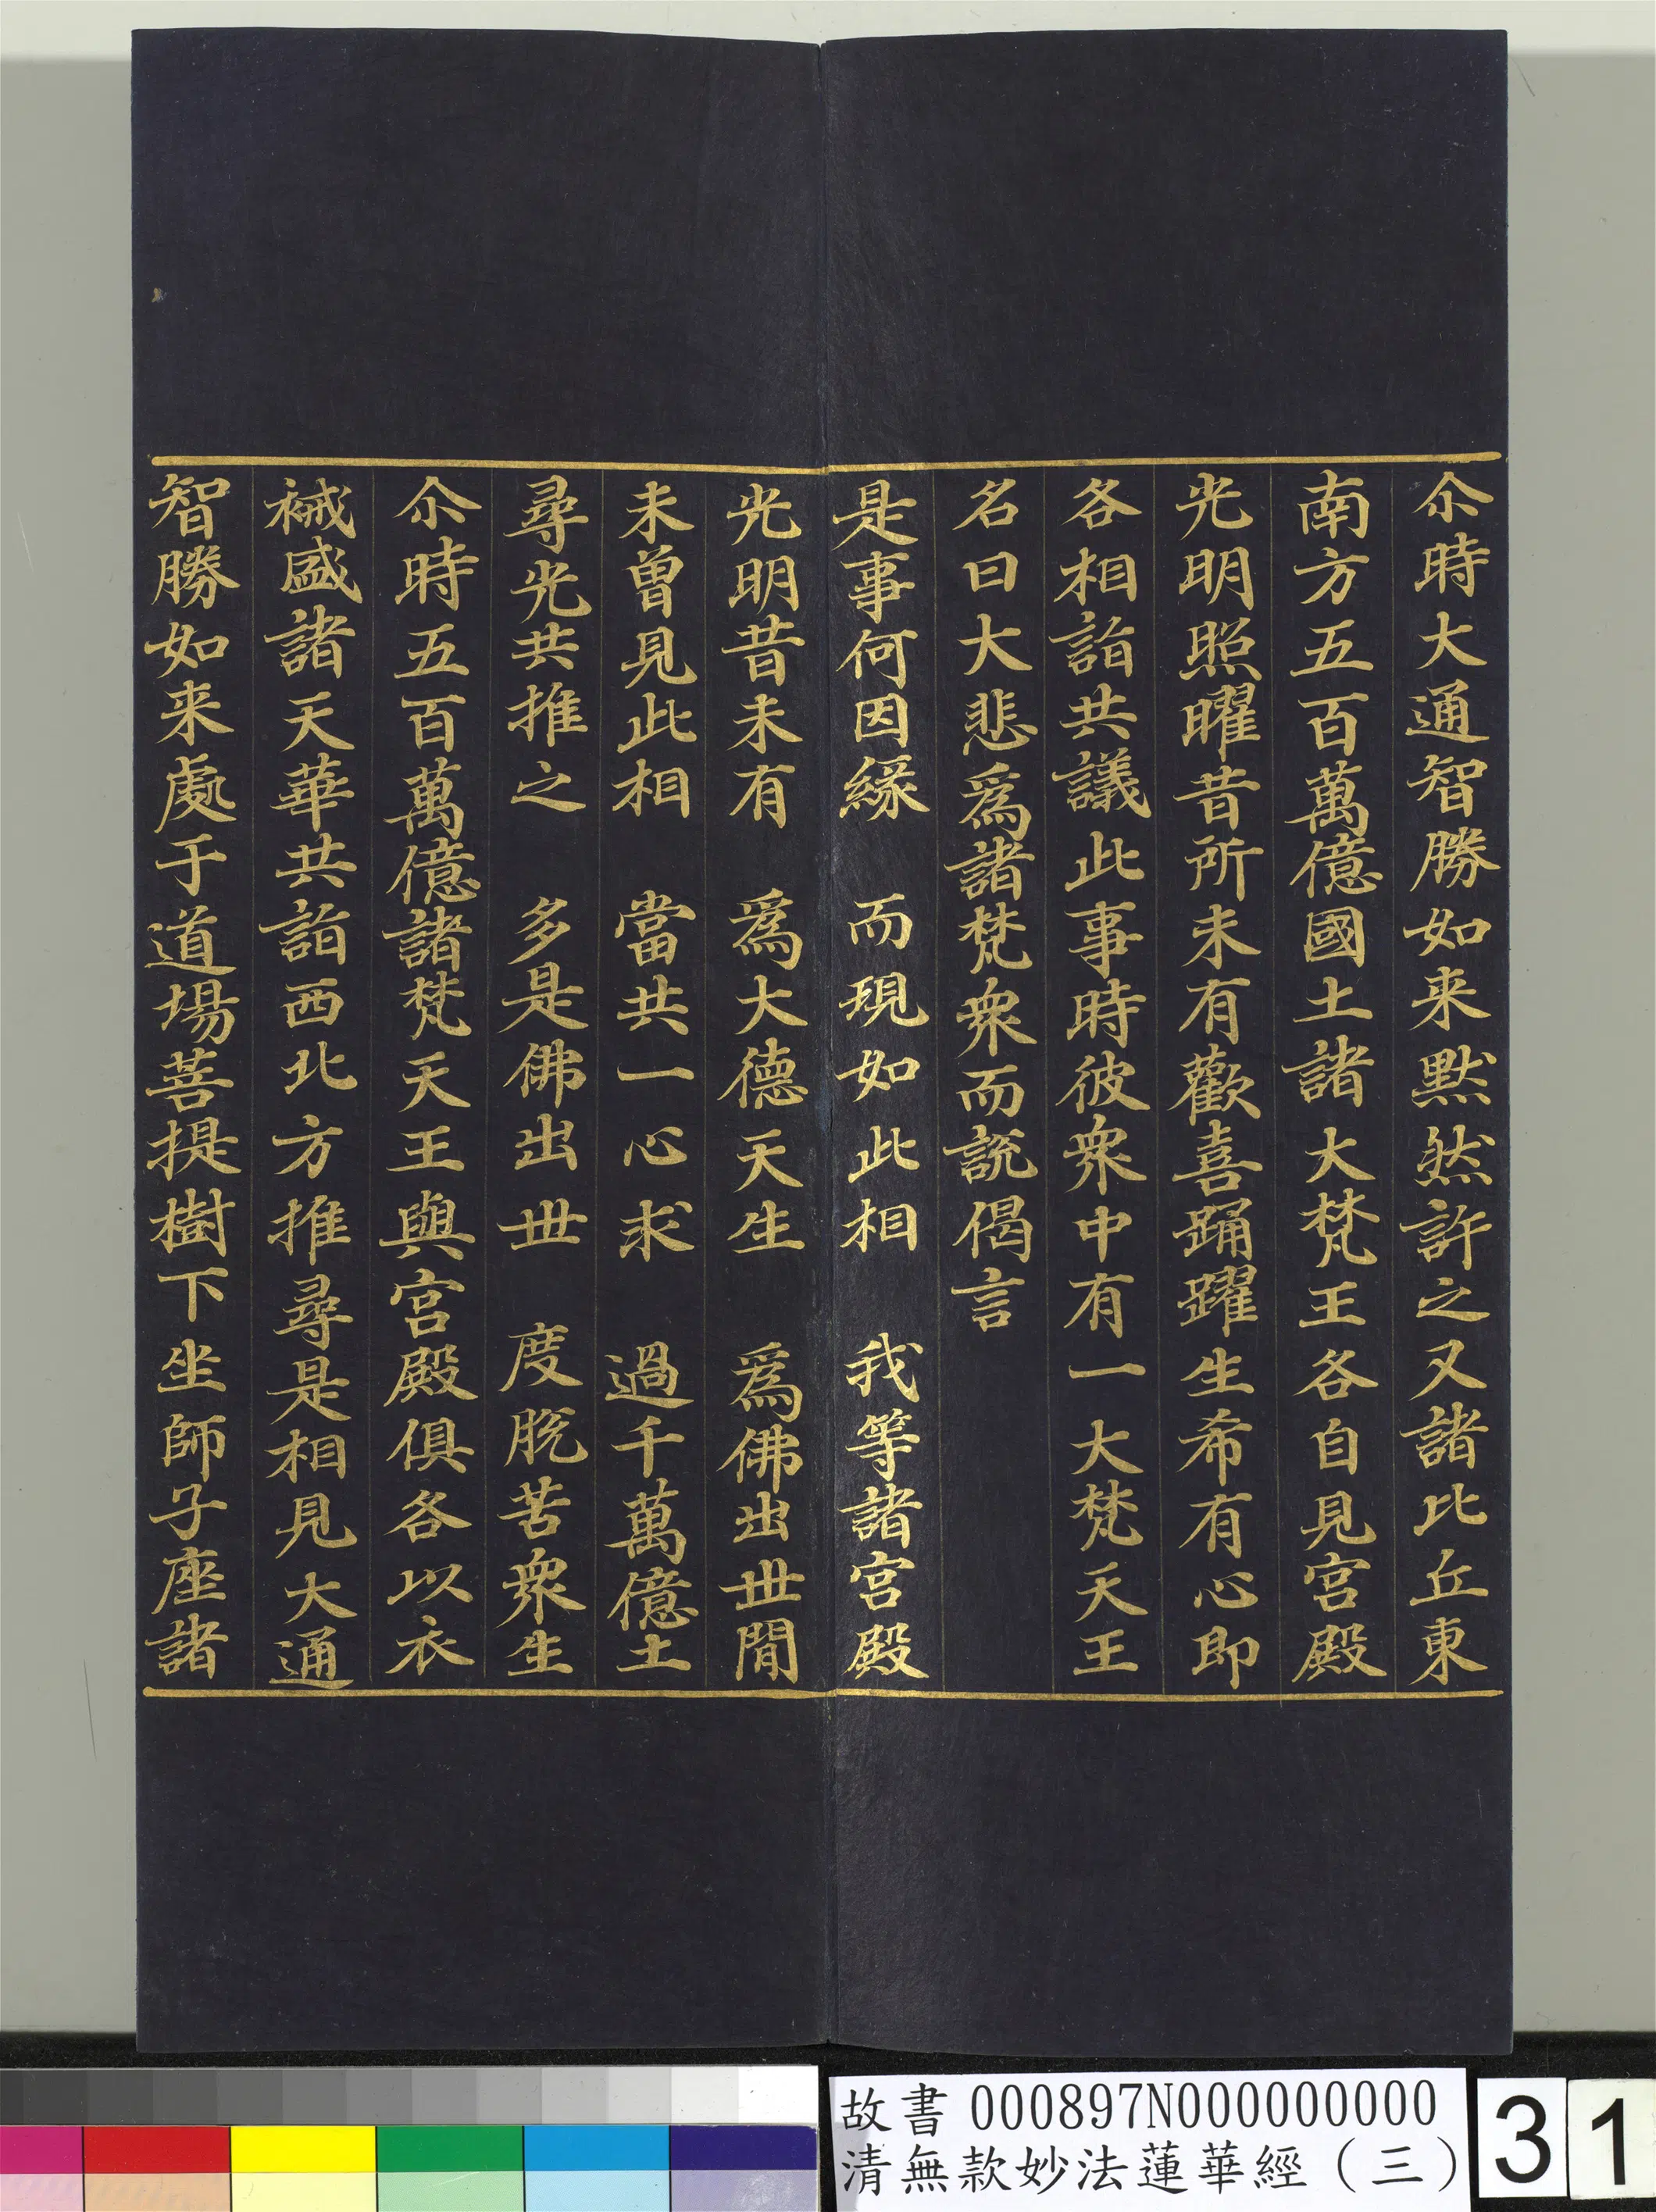 尒時大通智勝如来黙然許之又諸比丘東
南方五百萬億國土諸大梵王各自見宮殿
光明照曜昔所未有歡喜踊躍生希有心即
各相詣共議此事時彼衆中有一大梵天王
名曰大悲爲諸梵衆而説偈言
是事何因緣　而現如此相　我等諸宮殿
光明昔未有　爲大德天生　爲佛出世間
未曽見此相　當共一心求　過千萬億土
尋光共推之　多是佛出世　度脱苦衆生
尒時五百萬億諸梵天王與宮殿俱各以衣
裓盛諸天華共詣西北方推尋是相見大通
智勝如来處于道場菩提樹下坐師子座諸
故書 000897N000000000
清無款妙法蓮華經（三）
31